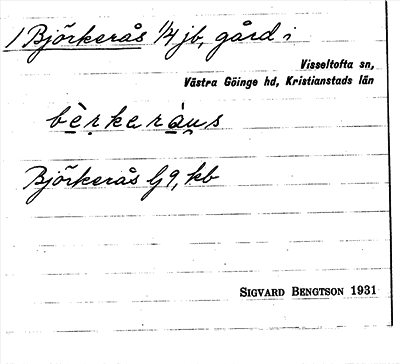 1 Björkerås 1/4 jb, gård i
Visseltofta sn,
Västra Göinge hd, Kristianstads län
bèrkeràus
Björkerås lj 9, kb
SIGVARD BENGTSON 1931